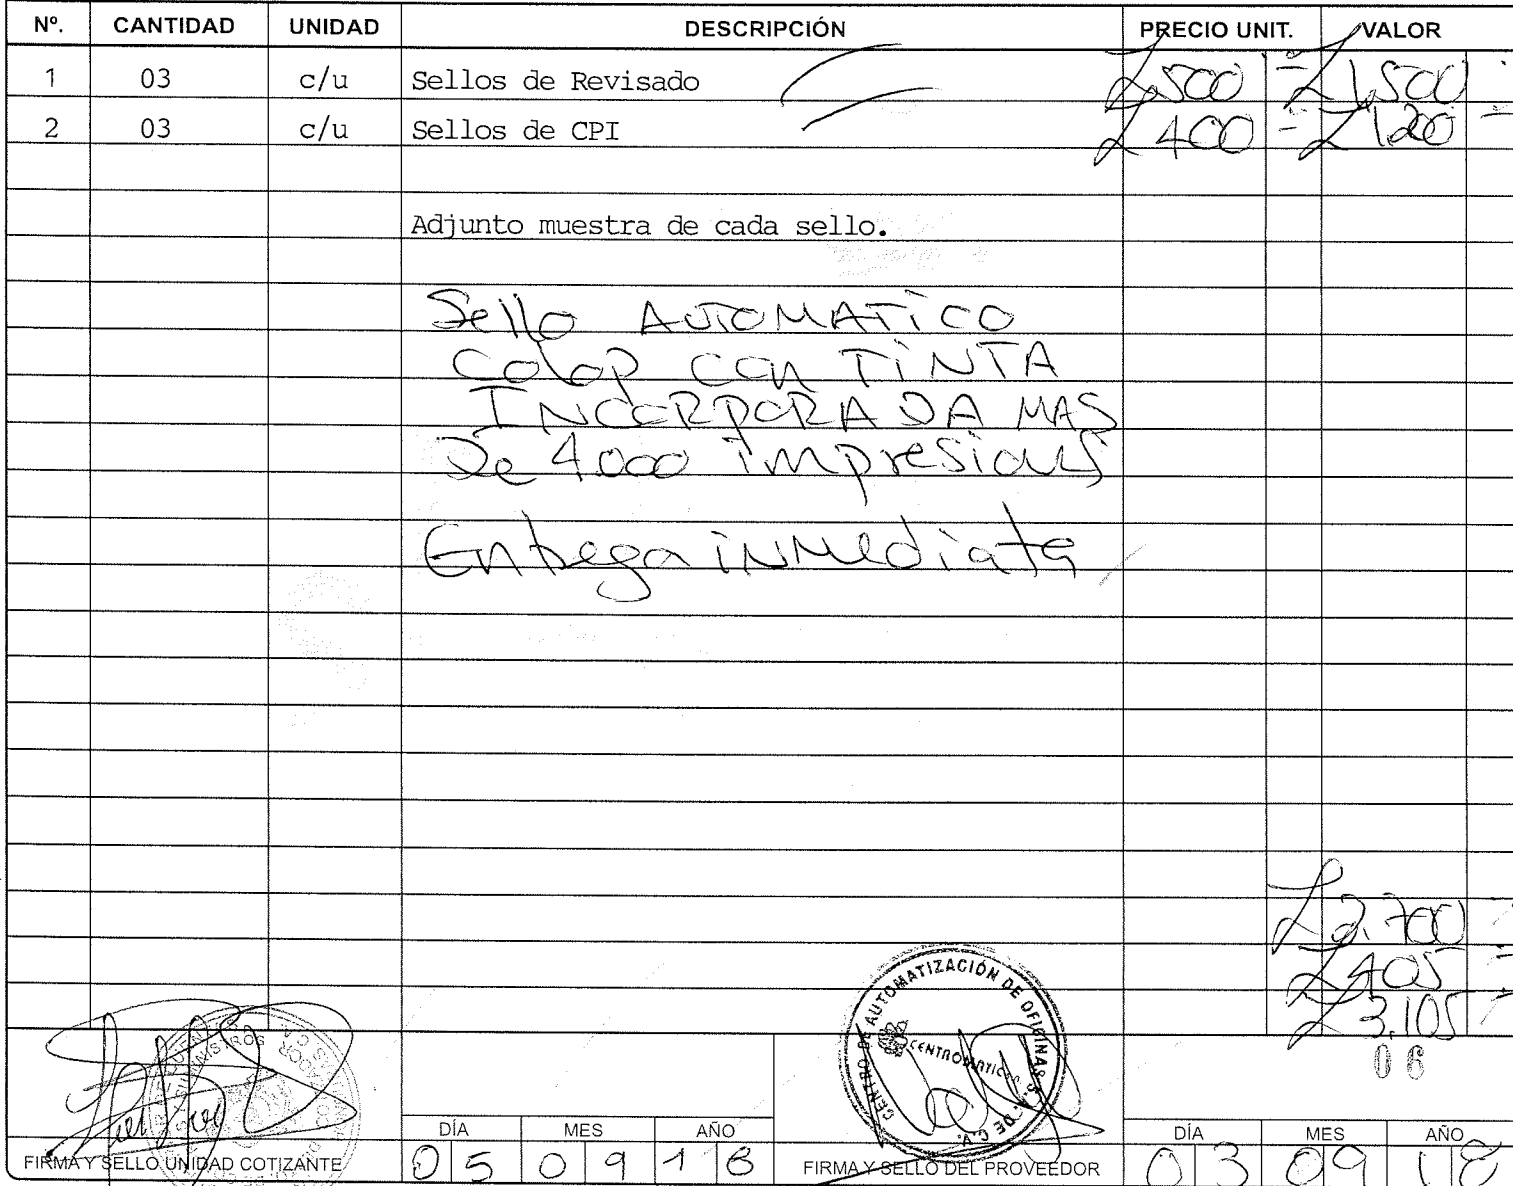 Nº. CANTIDAD UNIDAD DESCRIPCIÓN PRECIO UNIT. VALOR
1 03 c/u Sellos de Revisado L 500 - L 1,500 -
2 03 c/u Sellos de CPI L 400 - L 1,200 -
Adjunto muestra de cada sello.
Sello AUTOMATICO
Colop con TINTA
INCORPORADA MAS
De 4.000 impresiones
Entrega inmediata
L 2,700
L 405
L 3,105
06
CENTRO DE AUTOMATIZACIÓN DE OFICINAS S.A. DE C.V.
CENTROMATIC
DÍA MES AÑO
FIRMA Y SELLO UNIDAD COTIZANTE 05 09 18
FIRMA Y SELLO DEL PROVEEDOR
DÍA MES AÑO
03 09 18